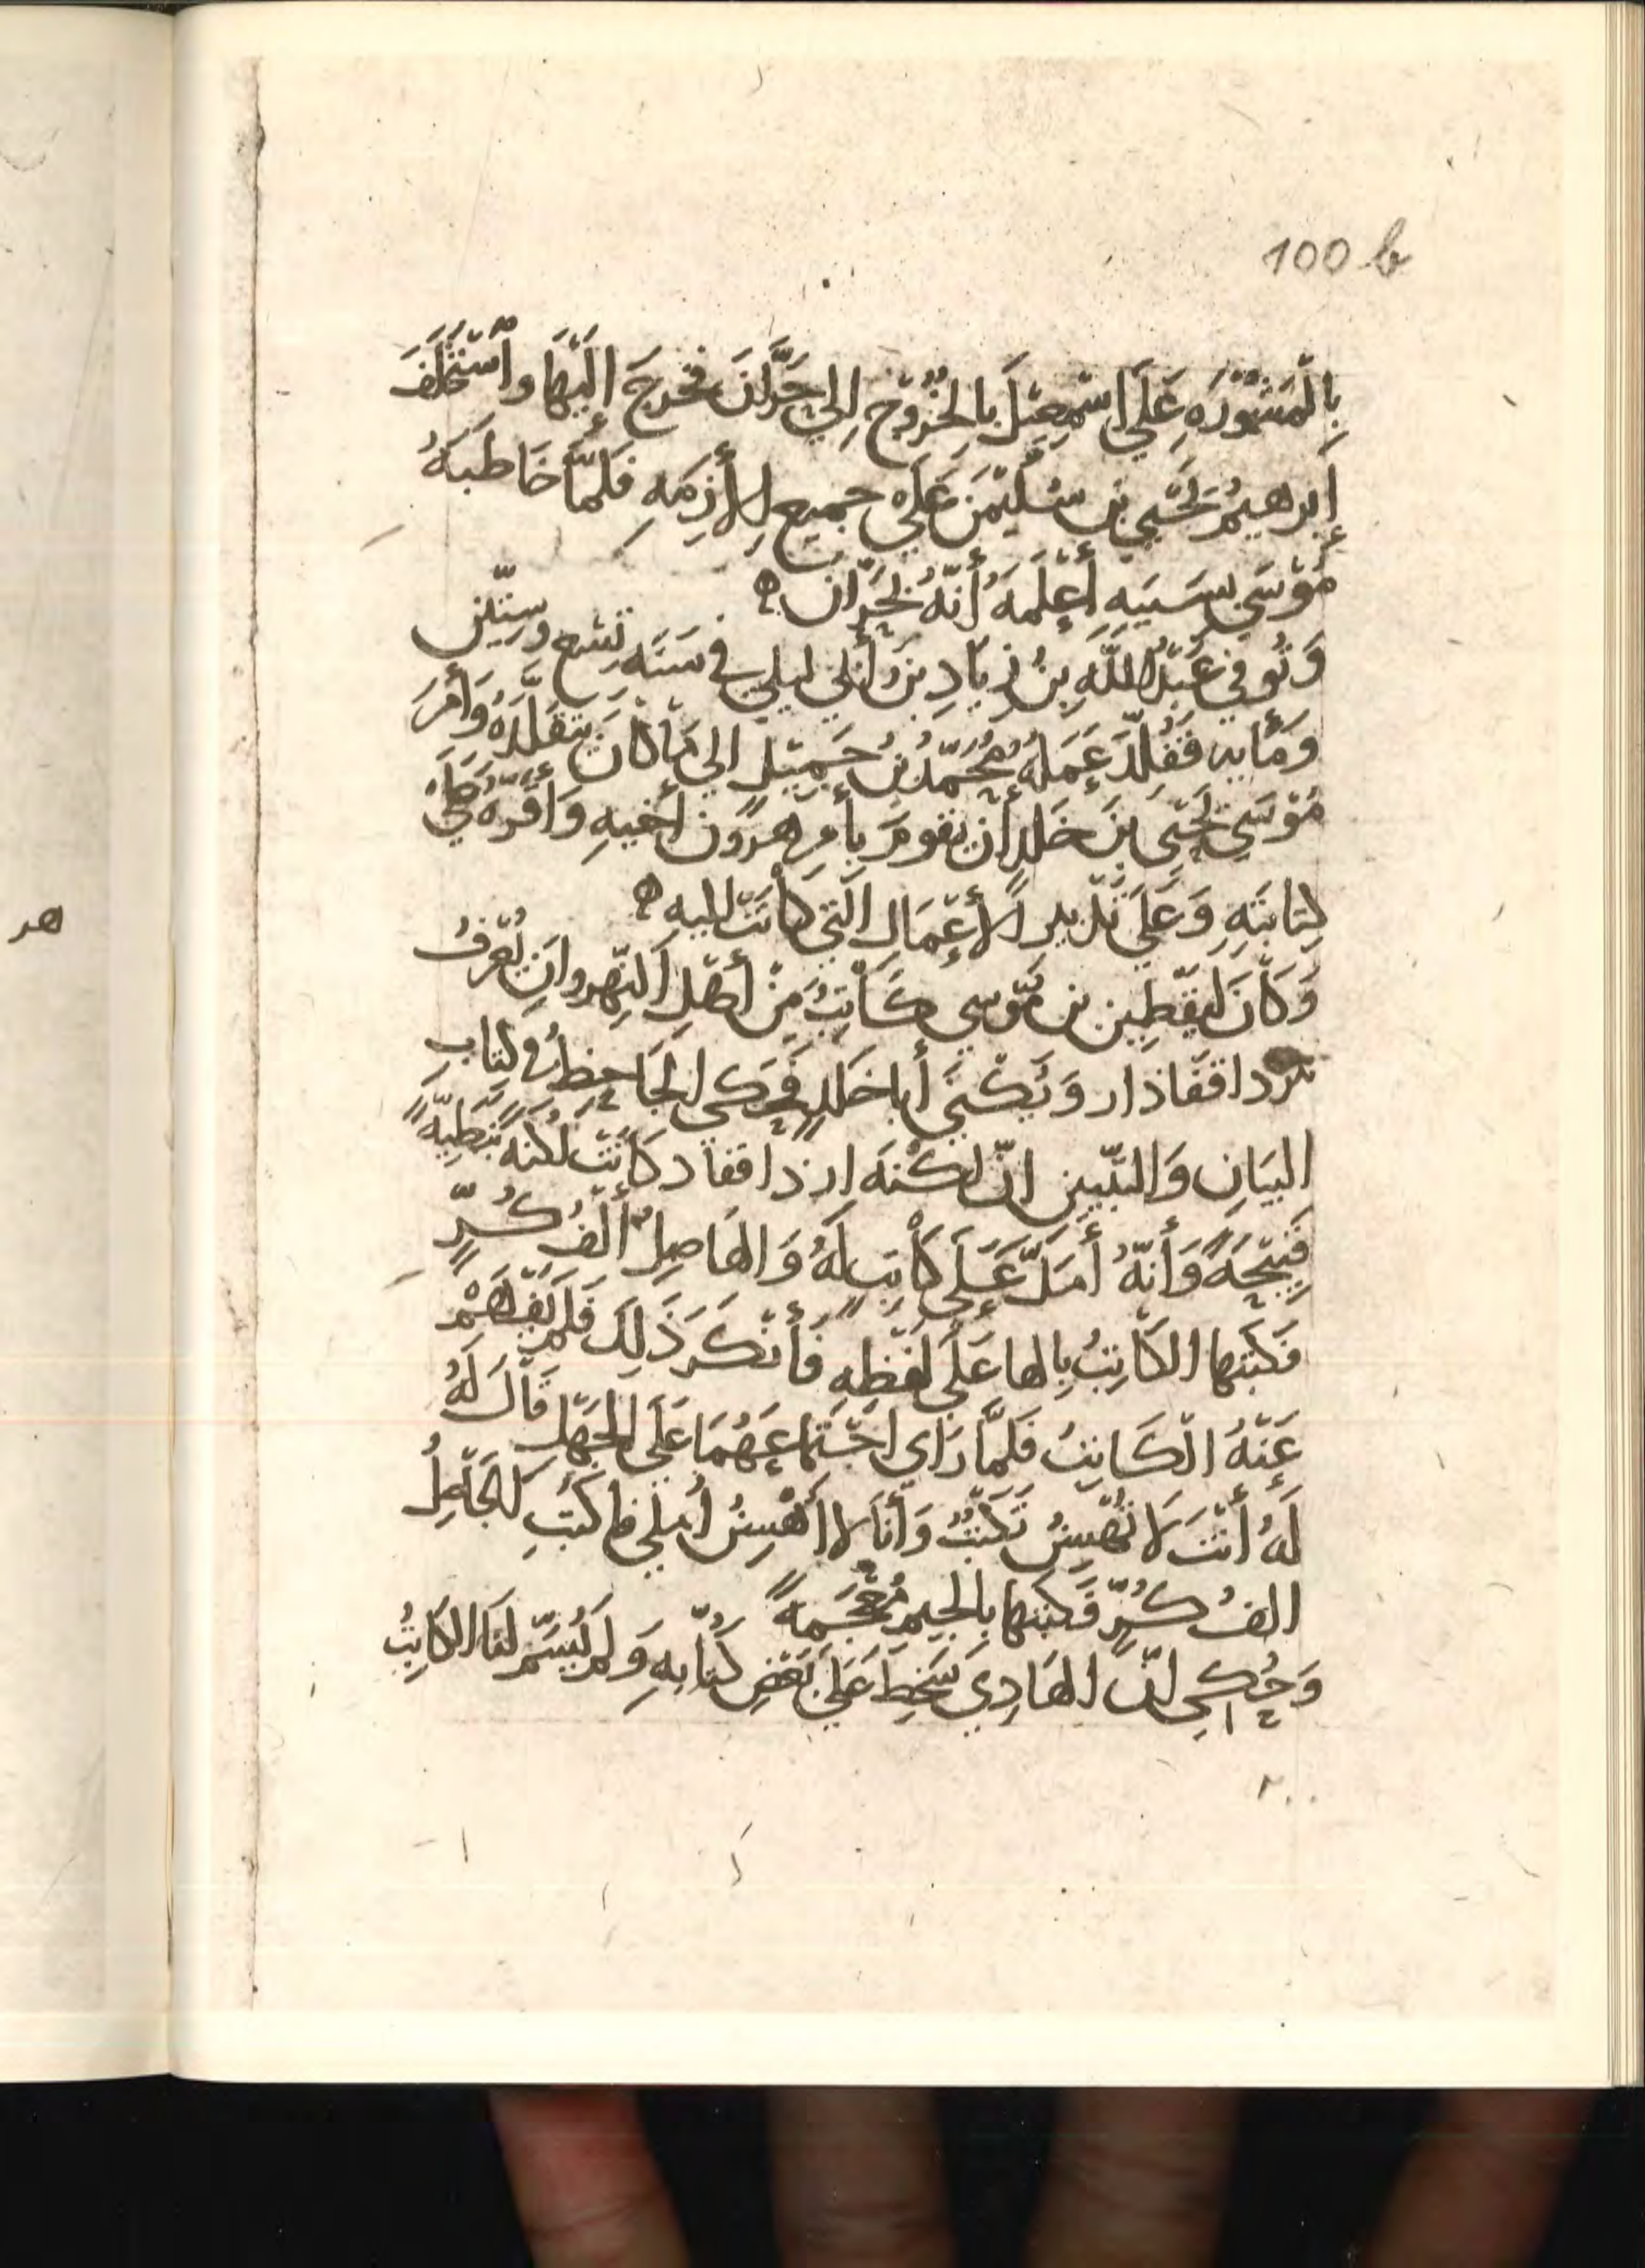 100 b
بِالْمَشُوْرَةِ عَلَى اسْمعِيْلَ بِالْخُرُوْجِ اِلي حَرَّانَ فخرجَ إِلَيْهَا واسْتَخْلَفَ
إبرهيمُ يَحْيي بن سُلَيْمَنَ عَلَي جميع الأزِمَهِ فَلَمَّا خَاطَبَهُ
مُوْسَي بِسَبَبِهِ أَعْلَمَهُ أَنَّهُ بحَرَّان ه
وَتُوفي عَبْدُ اللَّهِ بنُ زِيَادِ بنِ أَبي ليلي في سَنَه تِسْع وسِتّين
وَمأيه فَقُلِّدَ عَمَلَهُ مُحَمَّدُ بنُ جَمِيْلٍ الي مَا كَانَ يَتَقَلَّدَهُ وَأَمَرَ
مُوْسَي يَحْيَى بنَ خَلدٍ أَن يَقومَ بِأَمرِ هرُون أَخيهِ وَأَقَرَّهُ عَلَي
كِتَابَتِهِ وَعَلَي تَدْبير الأعْمَالِ الَّتي كَانَتْ اليهِ ه
وَكَانَ لِيَقْطِين بن مُوسي كَاتِبٌ مِنْ أَهْلِ النَّهروانِ يُعْرَفُ
داقفاذار وَيُكْنَي أَبا خَلدٍ فَحكي الجَاحِظُ في كِتَابِ
البَيَانِ وَالتبْيين انّ لكْنَه ازداقفاد كَانَتْ لُكْنَةً نَبَطِيَّةً
قَبِيْحَةً وَأَنَّهُ أَمَلَّ عَلَي كَاتِبٍ لَهُ وَالهَاصِلُ أَلْفُ كُرٍّ
فكَتَبَها الكَاتِبُ بِالها عَلَى لَفْظِهِ فَأَنْكَرَ ذَلِكَ فَلَمْ يَفهَمْ
عَنْهُ الْكَاتِبُ فَلَمَّا رَاى اجْتِمَاعَهُمَا عَلَى الْجَهْلِ قَالَ لَهُ
لَهُ أَنْتَ لَا تُهْسِنُ تَكْتُبُ وَأَنَا لا أُهْسِنُ أُملي فاكتُبِ الجَاصِلُ
الفُ كُرٍّ فَكَتَبَها بِالجيم مُعْجَمَةً
وَحُكِي انَّ الهَادِي سَخِطَ عَلَي بَعْضِ كُتَّابِهِ وَلَم يُسَمّ لَنَا الكَاتِبُ
هر
٢٠٠